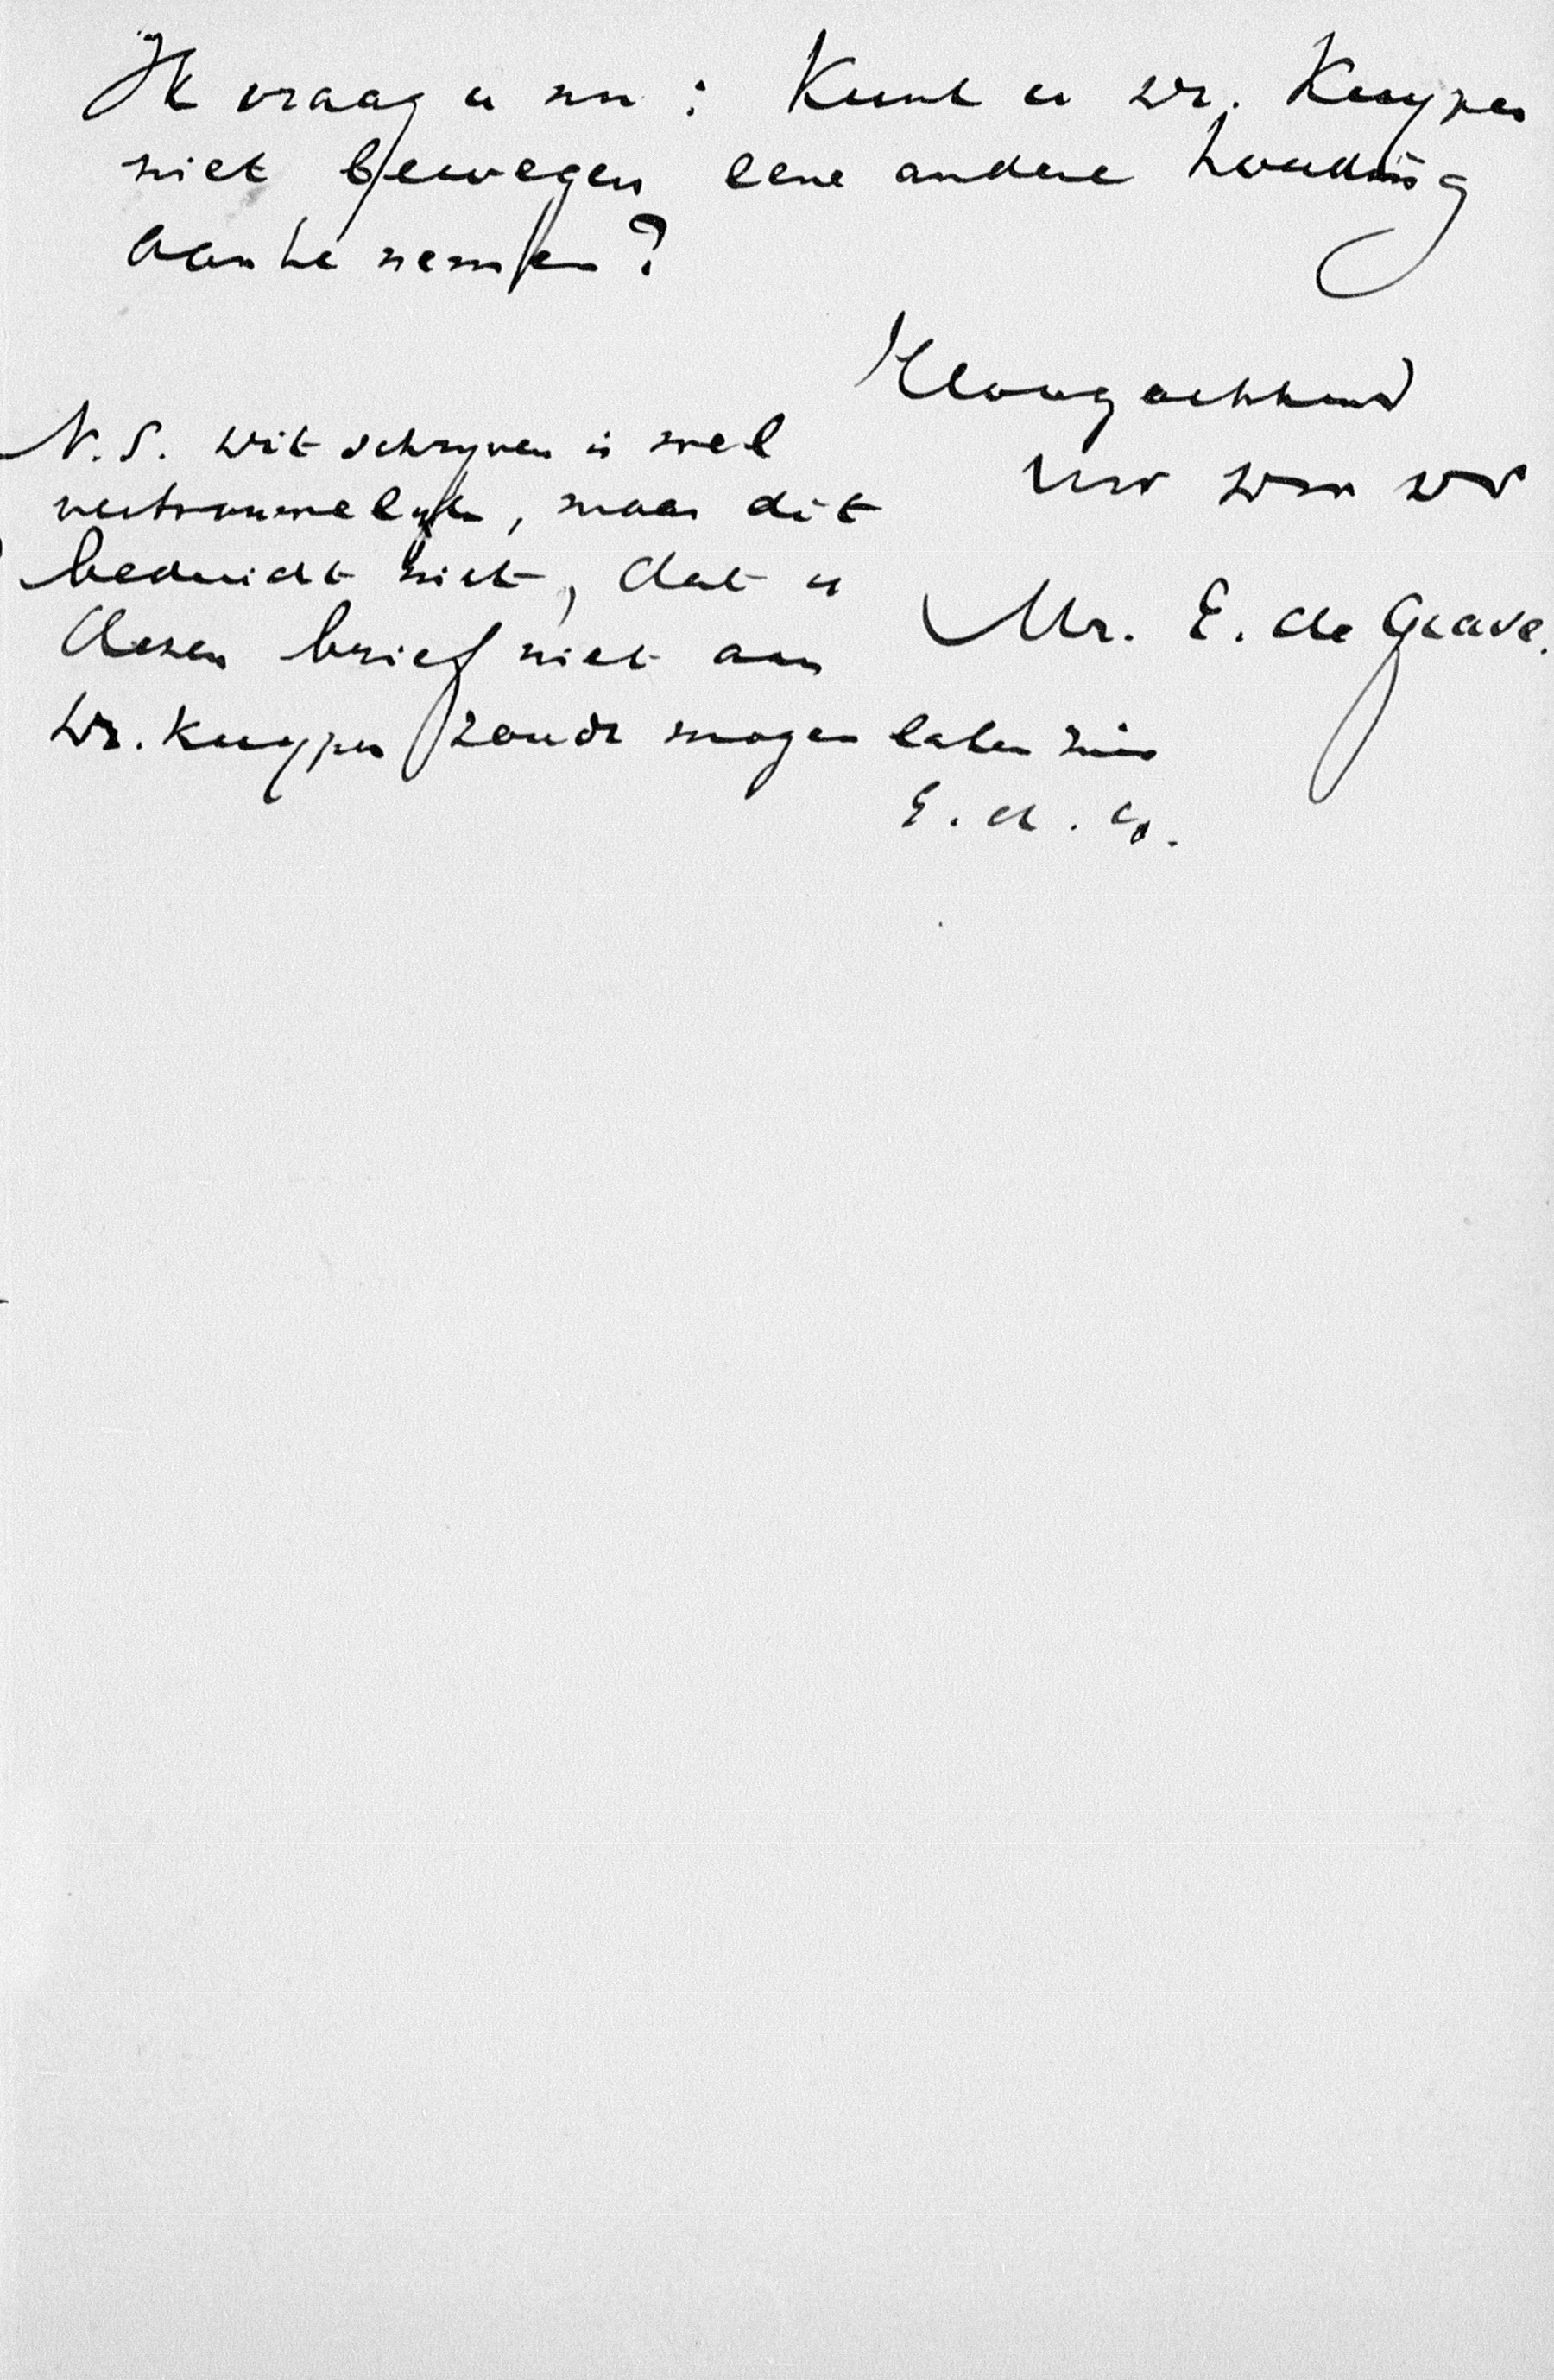 Ik vraag u nu: Kunt u Dr. Kuyper
niet bewegen eene andere houding
aan te nemen?
Hoogachtend
Uw Dw Dr
Mr. E. de Graaf.
N.S. Dit schrijven is wel
vertrouwelijk, maar dit
beduidt niet, dat u
dezen brief niet aan
Dr. Kuyper zoudt mogen laten zien
E. d. G.